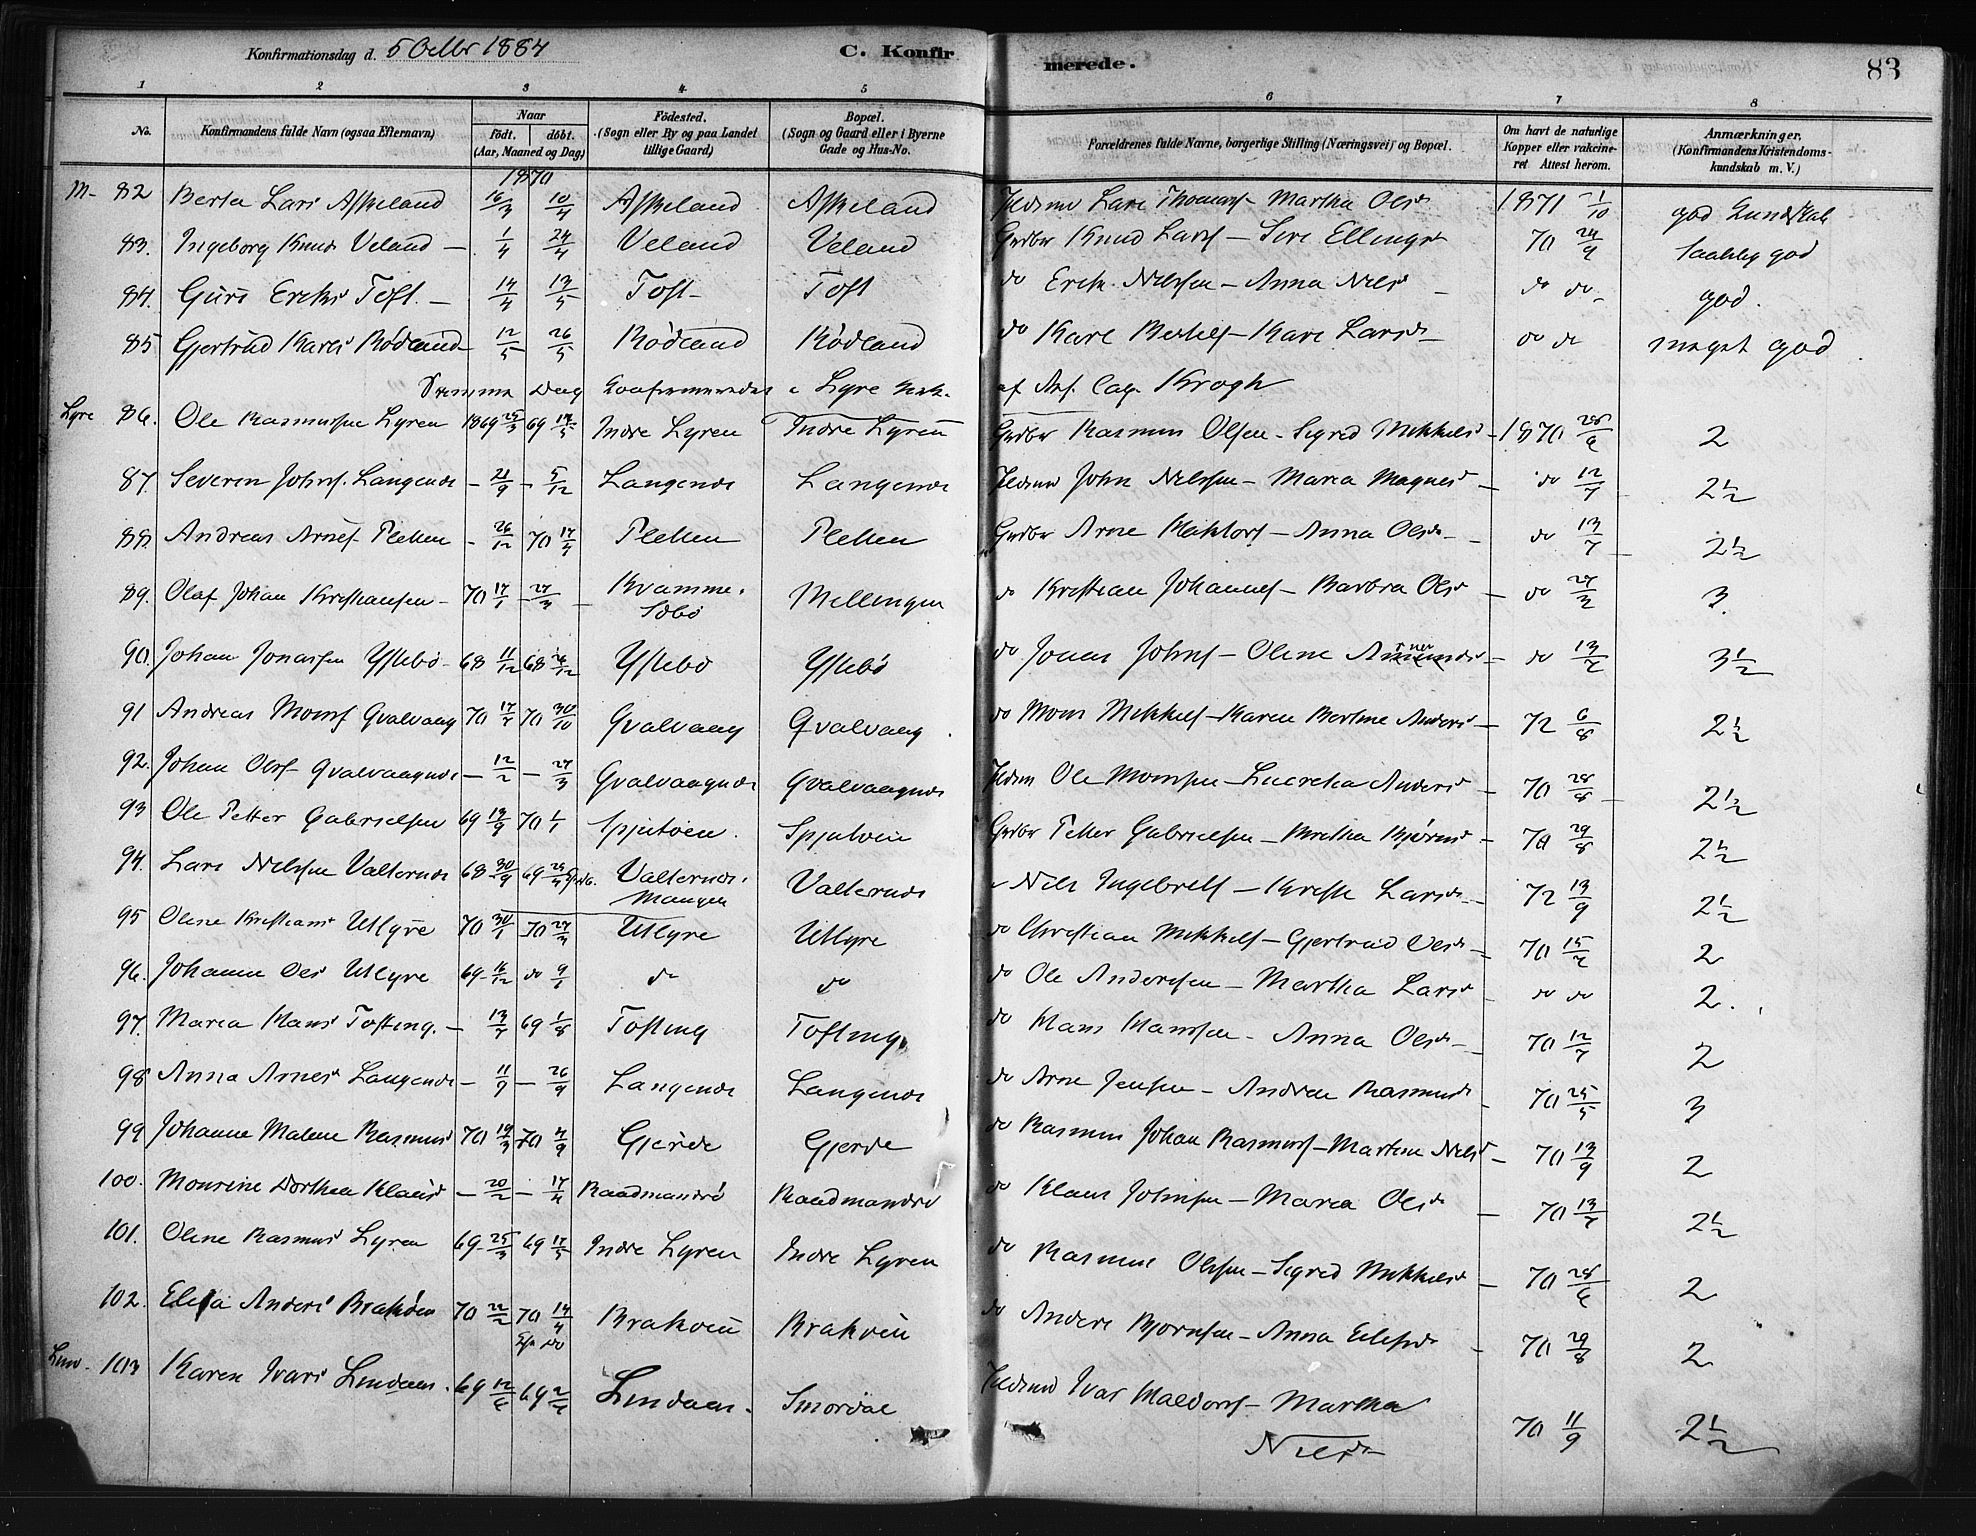 Konfirmationsdag d. 5 Octbr 1884
C. Konfirmerede.
83
1 2 3 4 5 6 7 8
No. Konfirmandens fulde Navn (ogsaa Efternavn) Naar født. døbt. (Aar, Maaned og Dag) Fødested. (Sogn eller By og paa Landet tillige Gaard) Bopæl. (Sogn og Gaard eller i Byerne Gade og Hus-No. Forældrenes fulde Navne, borgerlige Stilling (Næringsvei) og Bopæl. Om havt de naturlige Kopper eller vakcineret Attest herom. Anmærkninger. (Konfirmandens Kristendomskundskab m. V.)
1870
M- 82 Berta Lars Askeland 16/3 10/4 Askeland Askeland Lars Thomass - Martha Olsdr 1871 1/10 god Kundskab
83. Ingeborg Knuds Veland - 1/4 24/4 Veland Veland Grdbr Knud Larss - Siri Ellingsdr 70 24/9 god
84. Guri Eriks Toft - 14/4 13/5 Toft Toft do Erik Nilssen - Anna Nilsd do do god.
85 Gjertrud Kares Rødland 12/5 26/5 Rødland Rødland do Kare Bertels - Kari Larsdr do do meget god
Samme Dag Konfirmeredes i Lyre Kirke af Res. Cap. Krogh
Lyre 86. Ole Rasmussen Lyren 1869 25/3 69 17/5 Indre Lyren Indre Lyren Grdbr Rasmus Olsen - Sigrid Mikkelsd - 1870 28/6 2
87. Severin Johns. Langenes - 21/9 - 5/12 Langenes Langenes John Nilssen - Maria Magnesd - do 12/7 2½
88. Andreas Arnes. Pletten - 26/12 70 17/4 Pletten Pletten Grdbr Arne - Anna Olsdr - do 13/7 2½
89. Olaf Johan Kristiansen - 70 17/1 - 27/3 Kvamme. Mellingen do Kristian Johannes - Barbra Olsd - do 3
90. Johan Jonassen Ystebø - 68 11/12 68 26/12 Ystebø Ystebø do Jonas Johns - Oline - do 13/7 3½
91 Andreas Monss Qvalvaag 70 17/7 70 30/10 Qvalvaag Qvalvaag do Mons Mikkels - Karen Bertine Andersd - 72 6/8 2½
92. Johan Olss Qvalvaagnes - 12/2 - 27/3 Qvalvaagnes Qvalvaagnes Ole Monssen - Lucretia Andersd - 70 28/8 2½
93 Ole Petter Gabrielsen 69 19/9 70 1/1 Spjutøen. Spjutøen Grdbr Petter Gabrielsen - - 70 29/8 2½
94. Lars Nilssen Valternes 68 30/9 69 Valternes. Manger Valternes Nils Ingebrets - Larsdr - 72 13/9 2½
95 Oline Kristians Utlyre 70 30/1 70 27/3 Utlyre Utlyre do Christian Mikkels - Gjertrud Olsdr - 70 15/7 2
96. Johanne Oles Utlyre 69 16/12 do 9/1 do do do Ole Anderssen - Martha Larsd - do do 2.
97. Maria Hans Tofting. - 13/7 69 1/8 Tofting Tofting do Hans Hanssen - Anna Olsdr - 70 12/7 2
98 Anna Arnes Langenes - 11/9 - 26/9 Langenes Langenes do Arne Jensen - Andrea Rasmusd - 70 25/5 3
99 Johanne Malene Rasmus 70 19/3 70 4/9 Gjerde Gjerde do Rasmus Johan Rasmuss - Martine Nilsd - 70 13/9 2
100. Monsine Dorthea Klaus - 20/2 - 17/4 Raadmandsø Raadmandsø do Klaus Johnsen - Maria Olsd - 70 13/7 2½
101. Oline Rasmus Lyren 69 25/3 69 17/5 Indre Lyren Indre Lyren do Rasmus Olssen - Sigrid Mikkelsd - 70 28/6 2
102. Elisa Anders Brakøen 70 22/2 70 14/4 Brakøen Brakøen do Anders Bjørnsen - Anna - 70 29/8 2
Lind. 103 Karen Ivars Lindaas. 69 Lindaas. Smørdal Ivar - Martha Nilsdr 70 11/9 2½